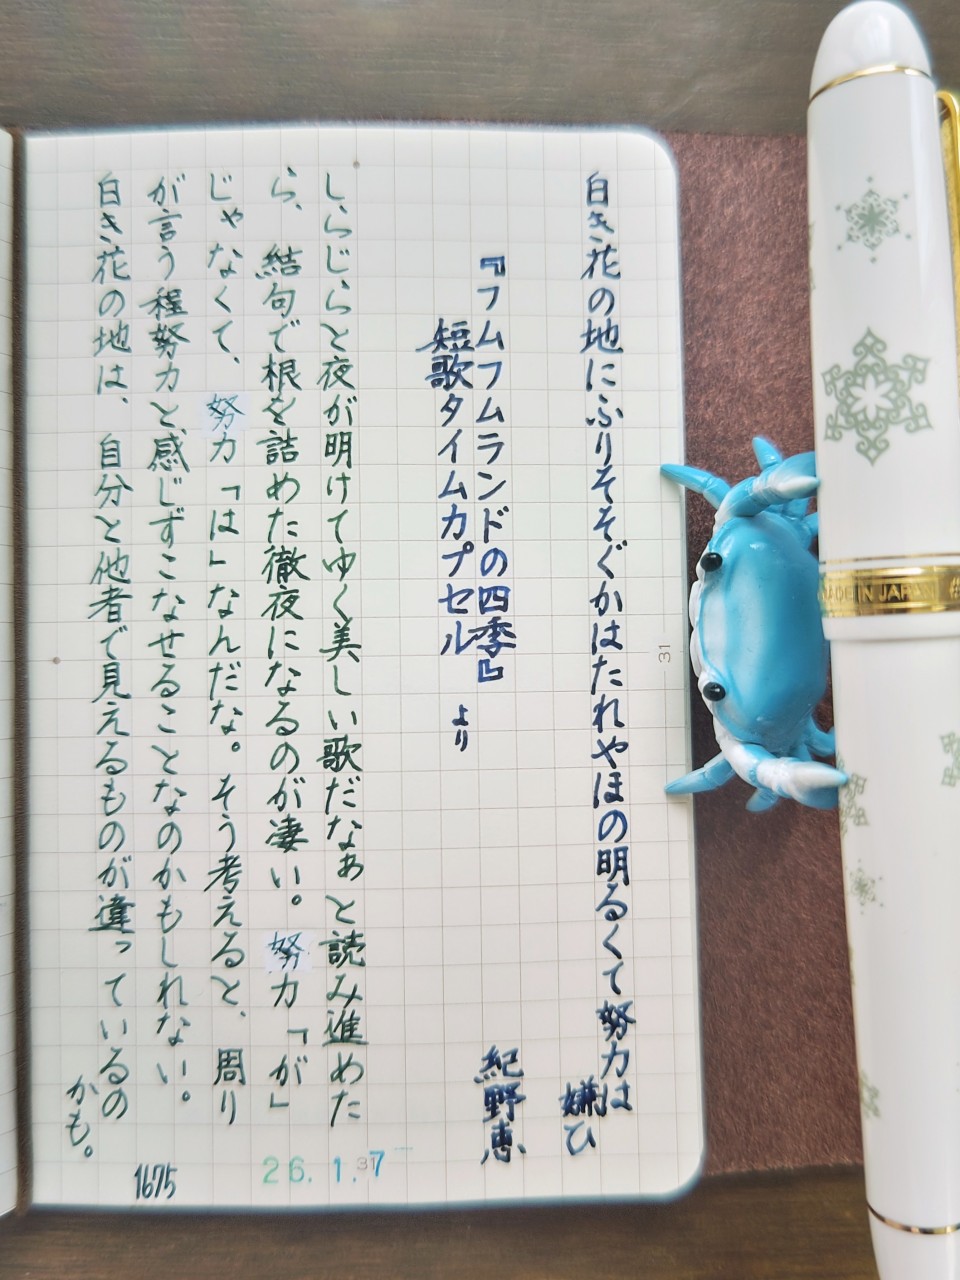 白き花の地にふりそそぐかはたれやほの明るくて努力は
嫌ひ
『フムフムランドの四季』
短歌タイムカプセル より
紀野恵
しらじらと夜が明けてゆく美しい歌だなぁと読み進めた
ら、結句で根を詰めた徹夜になるのが凄い。努力「が」
じゃなくて、努力「は」なんだな。そう考えると、周り
が言う程努力と感じずこなせることなのかもしれない。
白き花の地は、自分と他者で見えるものが違っているの
かも。
1675
26.1.7
31
31
MADE IN JAPAN